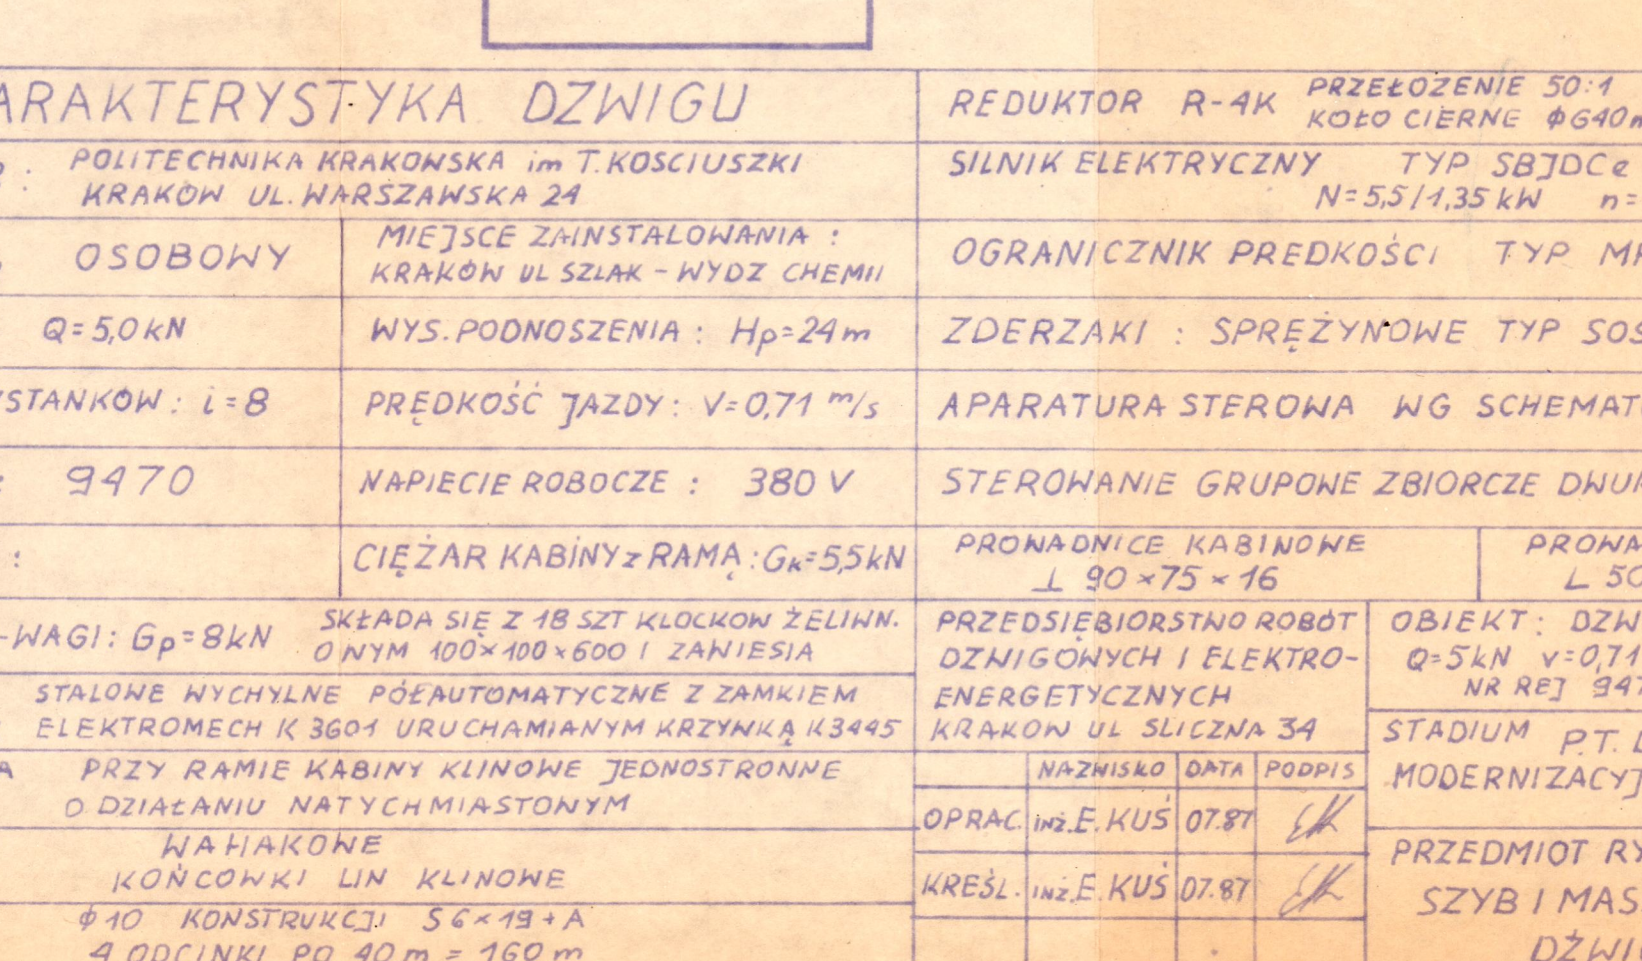 ARAKTERYSTYKA DZWIGU
POLITECHNIKA KRAKOWSKA im T. KOSCIUSZKI
KRAKÓW UL. WARSZAWSKA 24
OSOBOWY
MIEJSCE ZAINSTALOWANIA :
KRAKÓW UL SZLAK - WYDZ CHEMII
Q=5,0 kN
WYS. PODNOSZENIA : Hp=24m
YSTANKÓW : i=8
PRĘDKOŚĆ JAZDY : V=0,71 m/s
: 9470
NAPIECIE ROBOCZE : 380 V
:
CIĘŻAR KABINY z RAMĄ : Gk=5,5kN
-WAGI : Gp=8kN
SKŁADA SIĘ Z 18 SZT KLOCKOW ŻELIWN.
O WYM 100×100×600 I ZAWIESIA
STALOWE WYCHYLNE PÓŁAUTOMATYCZNE Z ZAMKIEM
ELEKTROMECH K 3601 URUCHAMIANYM KRZYWKĄ K3445
A PRZY RAMIE KABINY KLINOWE JEDNOSTRONNE
O DZIAŁANIU NATYCHMIASTOWYM
WAHAKOWE
KOŃCOWKI LIN KLINOWE
ϕ10 KONSTRUKCJI S 6×19+A
4 ODCINKI PO 40m = 160m
REDUKTOR R-4K
PRZEŁOŻENIE 50:1
KOŁO CIERNE ϕ640m
SILNIK ELEKTRYCZNY TYP SBJDCe
N=5,5/1,35 kW n=
OGRANICZNIK PREDKOŚCI TYP
ZDERZAKI : SPRĘŻYNOWE TYP SOS
APARATURA STEROWA WG SCHEMAT
STEROWANIE GRUPOWE ZBIORCZE DWU
PROWADNICE KABINOWE
⊥ 90×75×16
PROWA
L 50
PRZEDSIĘBIORSTWO ROBÓT
DZWIGOWYCH I ELEKTRO-
ENERGETYCZNYCH
KRAKOW UL SLICZNA 34
OBIEKT : DZW
Q=5kN v=0,71
NR REJ 947
STADIUM P.T.
MODERNIZACYJ
NAZWISKO DATA PODPIS
OPRAC. inż. E. KUŚ 07.87
KREŚL. inż. E. KUŚ 07.87
PRZEDMIOT RY
SZYB I MAS
DŹWI